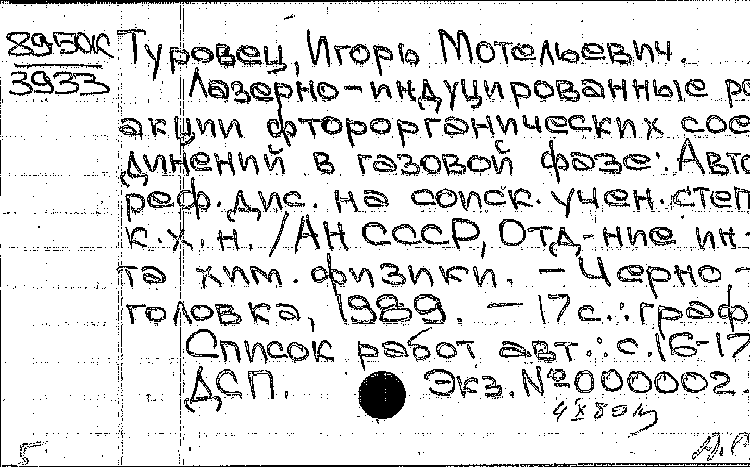 8950к Туровец, Игорь Мотельевич.
3933 Лазерно-индуцированные ре
акции фторорганических сое
динений в газовой фазе: Авто
реф. дис. на соиск. учен. степ
к.х.н. / АН СССР, Отд-ние ин-
та хим. физики. – Черно-
головка, 1989. – 17 с.: граф
Список работ авт.: с. 16-17
ДСП. Экз. № 000002.